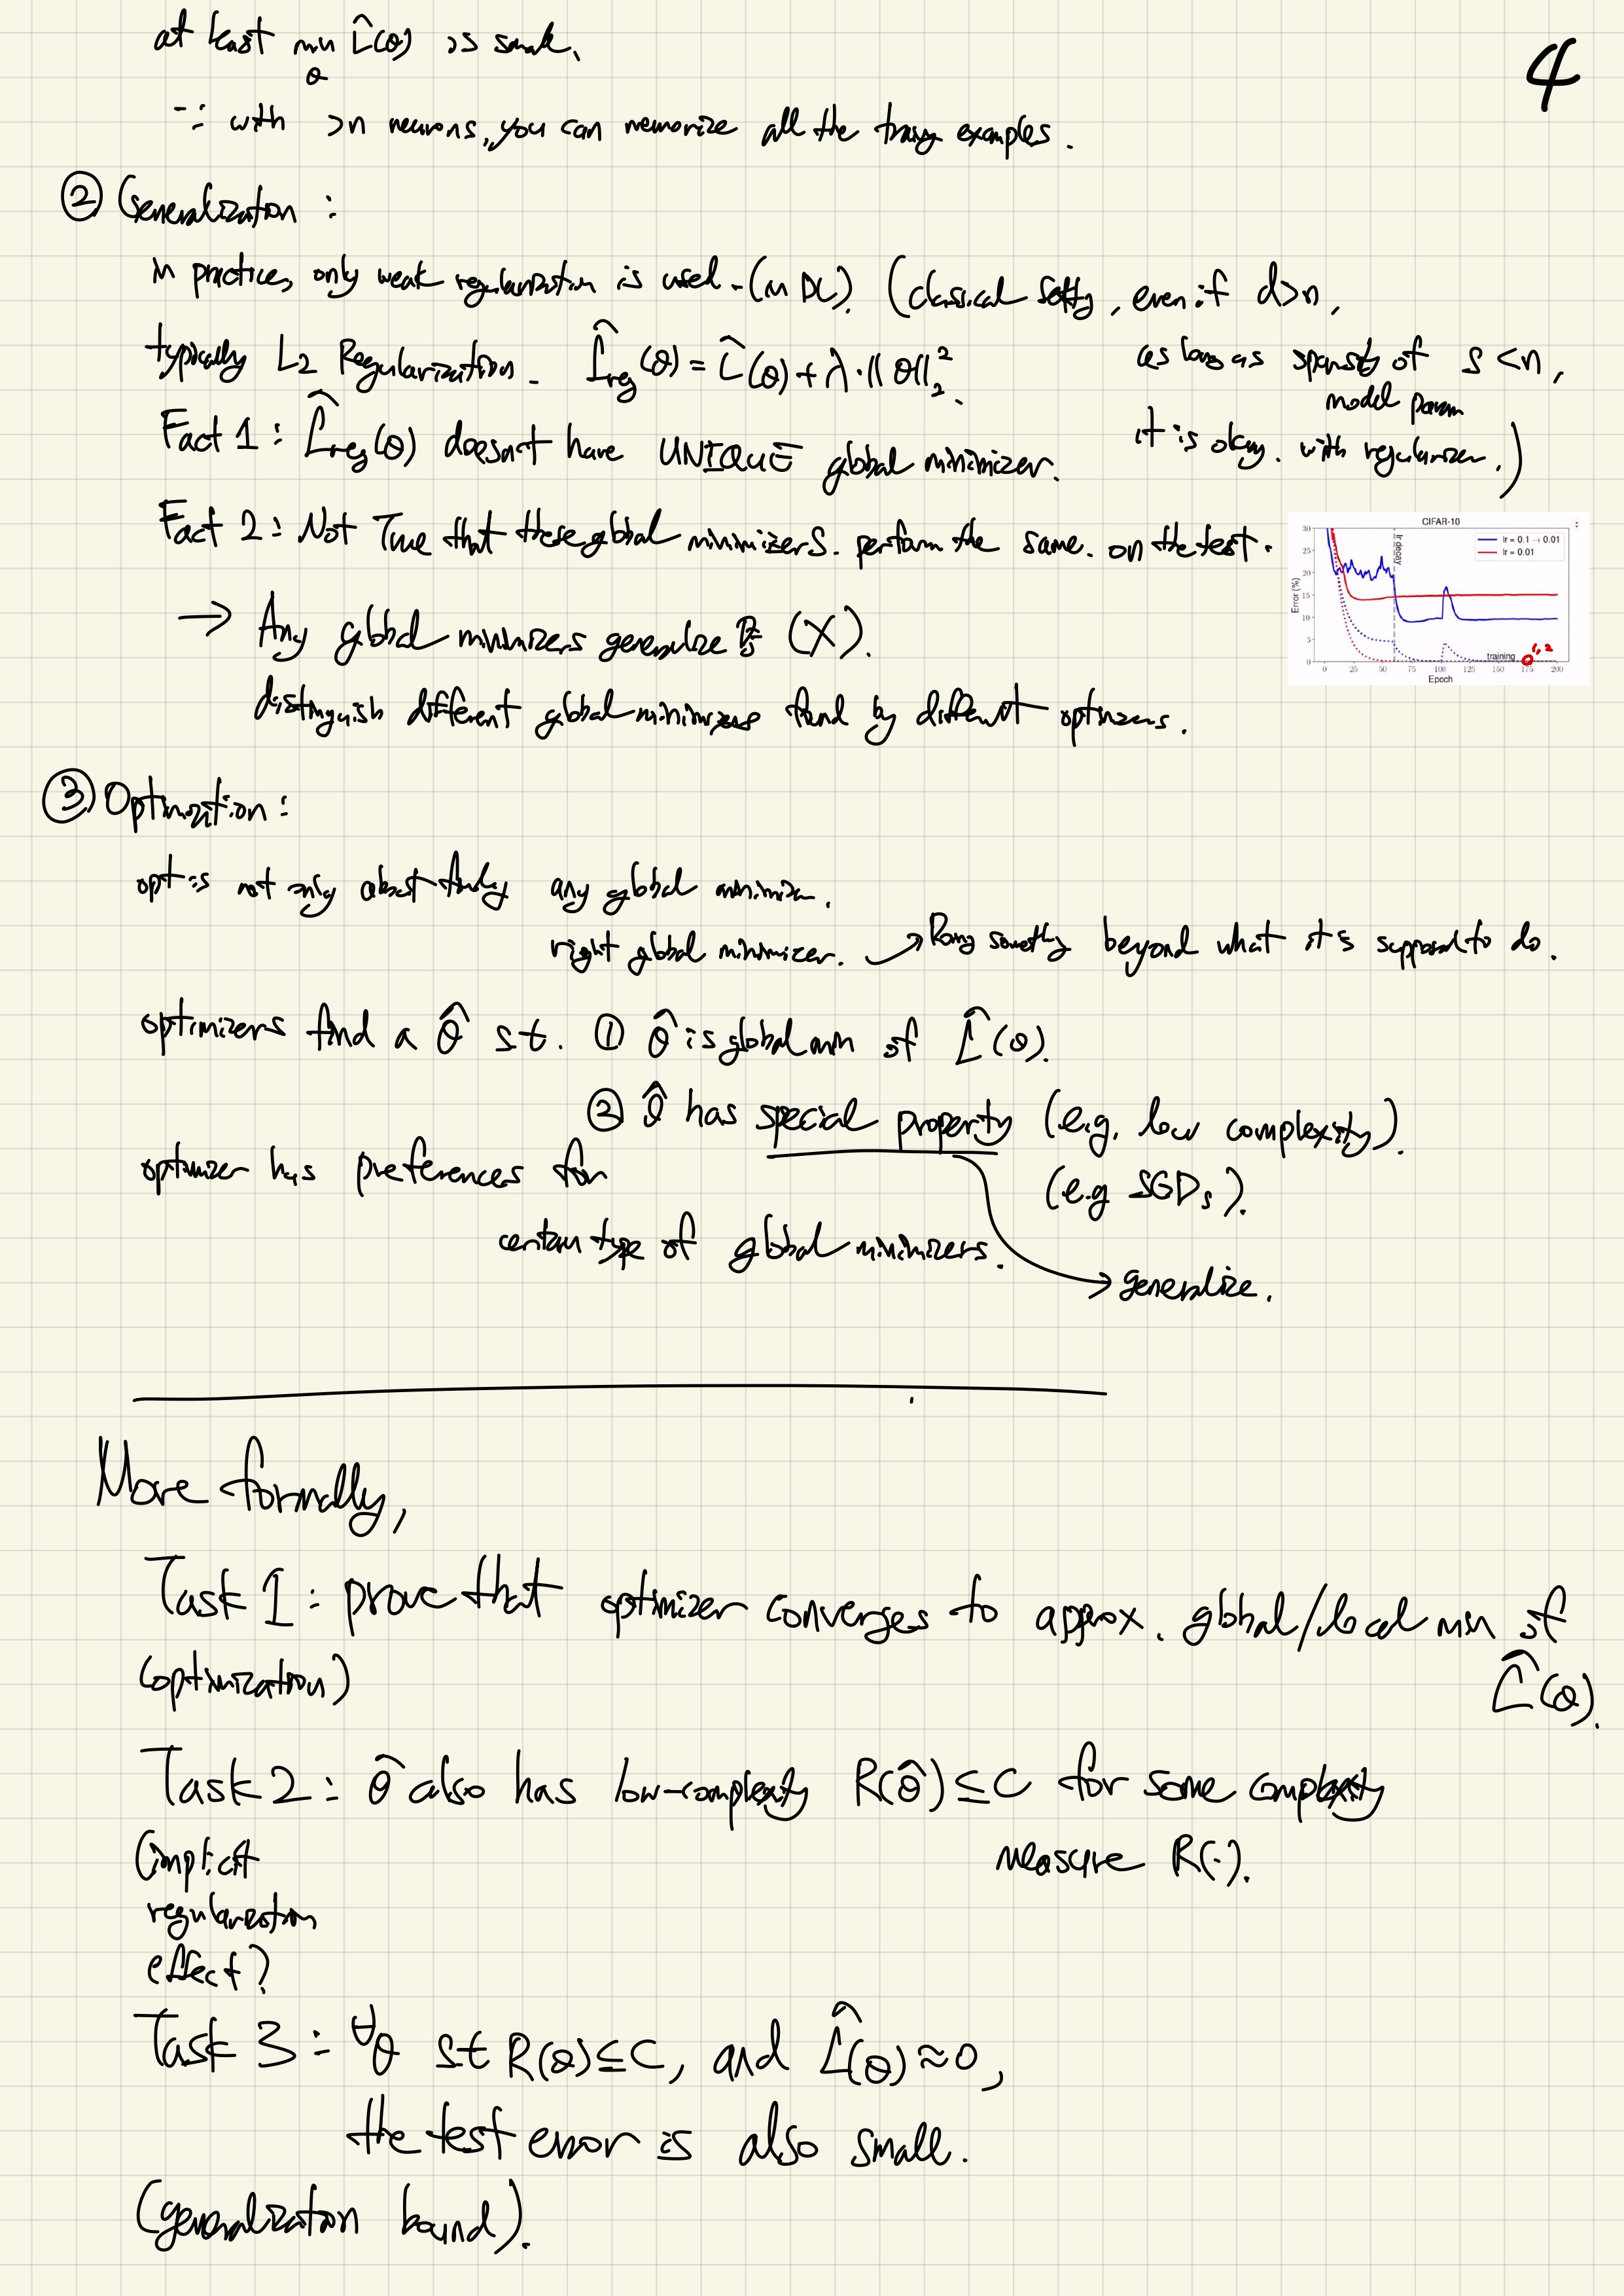 at least min L̂(θ) is small.
θ
4
∵ with >n neurons, you can memorize all the traing examples.
② Generalization :
In practice, only weak regularization is used - (in DL). (classical settg, even if d>n,
typically L2 Regularization. L̂reg (θ) = L̂(θ) + λ·||θ||₂².
as long as sparsity of S <n,
model param
Fact 1 : L̂reg(θ) doesn't have UNIQUE global minimizer.
it is okay. with regularizer.)
Fact 2 : Not True that these global minimizers. perform the same. on the test.
CIFAR-10
30
25
20
15
10
5
0
Error (%)
lr decay
lr = 0.1 → 0.01
lr = 0.01
training
1, 2
0 25 50 75 100 125 150 175 200
Epoch
→ Any global minimizers generalize (X).
distinguish different global minimizers found by different optimizers.
③ Optimization :
opt is not only about findg any global minimizer.
right global minimizer. → Doing somethg beyond what it's supposed to do.
optimizers find a θ̂ s.t. ① θ̂ is global min of L̂(θ).
② θ̂ has special property (e.g. low complexity).
(e.g SGDs).
optimizer has preferences for
certain type of global minimizers.
→ generalize.
More formally,
Task 1 : prove that optimizer converges to approx. global/local min of
(optimization)
L̂(θ).
Task 2 : θ̂ also has low-complexity R(θ̂) ≤ C for some complexity
measure R(·).
(implicit
regularization
effect?
Task 3 : ∀θ st R(θ) ≤ C, and L̂(θ) ≈ 0,
the test error is also small.
(generalization bound).